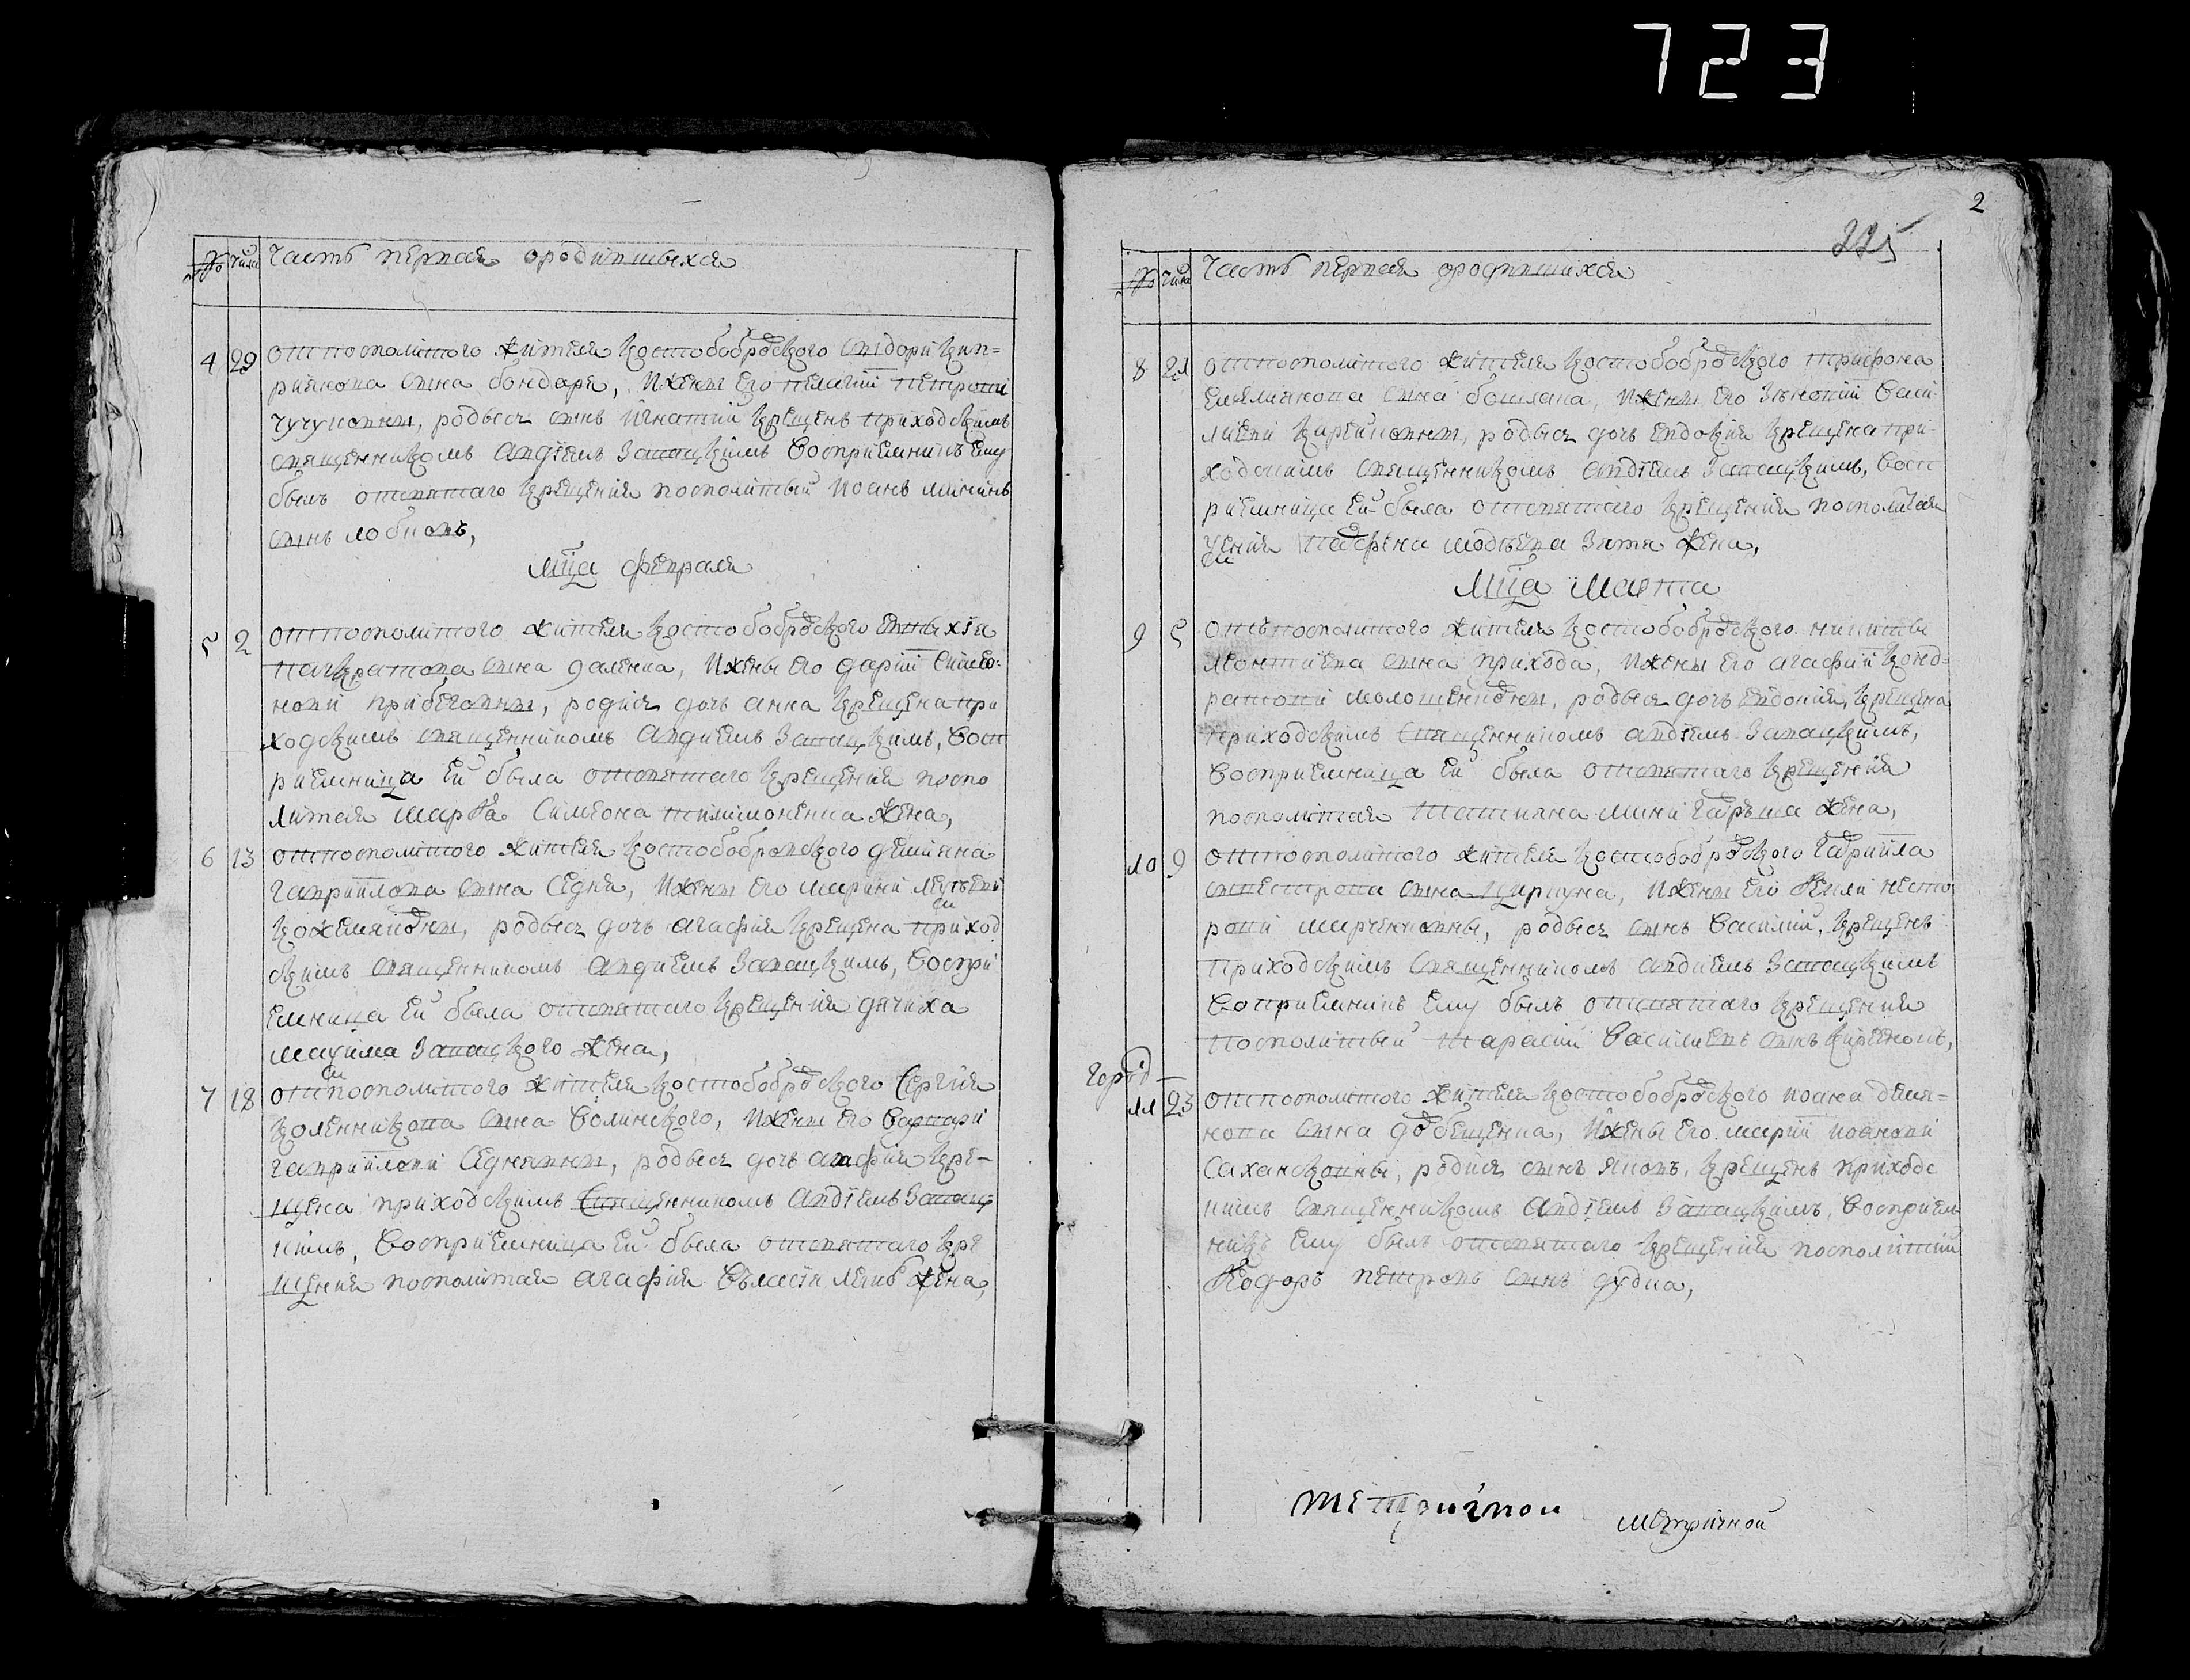 723
№ число Часть первая о родившыхся
4 29 от посполитого жителя костобобровского Сидора Кип=
риянова сына бондаря, и жены его Пелагии Петровой
Чучуковны, родыся сынъ Игнатий крещенъ приходскимъ
священникомъ Авдіемъ Запацкимъ Восприемникъ ему
былъ от святаго крещения посполитый Иоанъ Мининъ
сынъ Лобновъ,
мца февраля
5 2 от посполитого жителя костобобровского Евтыхія
Панкратова сына Даленка, и жены его Дарии Симео:
новой Прибеговны, родися дочь Анна крещена при
ходскимъ священникомъ Авдиемъ Запацкимъ, Восп
риемница ей была от святаго крещения поспо
литая Марѳа Симеона Тилимоненка жена,
6 13 от посполитого жителя костобобровского Демияна
Гавриилова сына Седня, и жены его Марини
Кожемяковны, родыся дочь Агафия крещена приход
скимъ священникомъ Авдиемъ Запацкимъ, Воспри
емница ей была от святаго крещения дячиха
Максима Запацкого жена,
7 18 от посполитого жителя костобобровского Сергия
Коленникова сына Волинского, и жены его Варвари
Гаврииловой Седневны, родыся дочь Агафия кре-
щена приходскимъ священникомъ Авдіемъ Запац
кимъ, Восприемница ей была от святаго кре
щения посполитая Агафия жена,
2
225
№ число Часть первая о родившихся
8 21 от посполитого жителя костобобровского Трифона
Емелиянова сына Бошлака, и жены его Зѣновии Васи-
лиевой Карейковны, родыся дочь Евдокия крещена при-
ходскимъ священникомъ Авдіемъ Запацкимъ, Восп
риемница ей была от святаго крещения посполитая
Ксения жена,
Мца Марта
9 5 отъ посполитого жителя костобобровского Никиты
Леонтиева сына Прихода, и жены его Агафии Конд=
ратовой Молошениковны, родыся дочь Евдокия, крещена
приходскимъ священникомъ Авдіемъ Запацкимъ,
Восприемница ей была от святаго крещения
посполитая Татияна Мини жена,
10 9 от посполитого жителя костобобровского Гавриила
Силвестрова сына Циркуна, и жены его Ѳекли Несто
ровой Марченковны, родыся сынъ Василий, крещенъ
приходскимъ священникомъ Авдиемъ Запацкимъ
Соприемникъ ему былъ от святаго крещения
посполитый Тарасий Василиевъ сынъ
11 23 от посполитого жителя костобобровского Иоана Демя=
нова сына Довбещенка, и жены его Марии Иоановой
Сахансковны, родися сынъ Яковъ, крещенъ приходс
кимъ священникомъ Авдіемъ Запацкимъ, Восприем
никъ ему былъ от святаго крещения посполитий
Ѳодоръ Петровъ сынъ Дудка,
метричной метричной